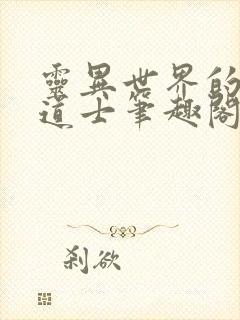 靈異世界的
道士筆趣閣
剎欲